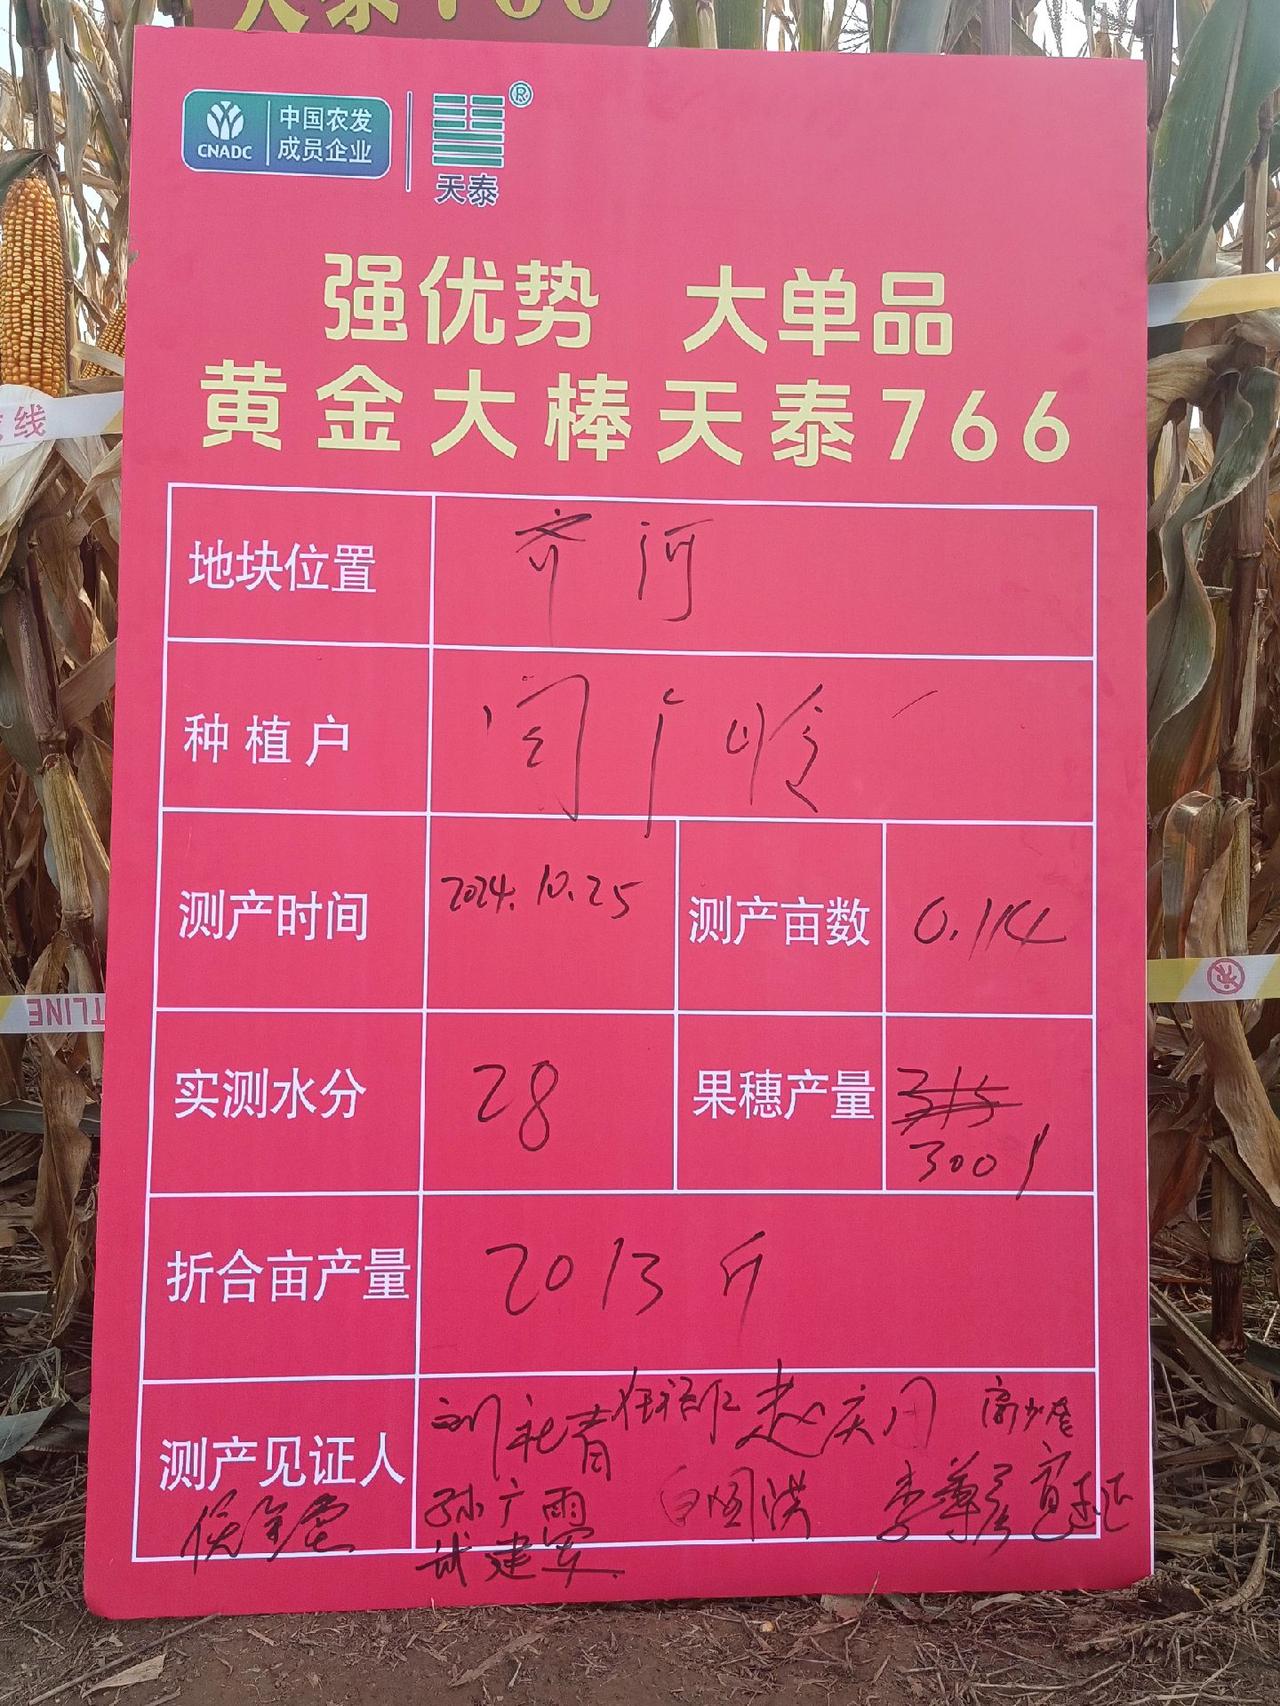 天泰766
CNADC
中国农发
成员企业
天泰
®
强优势 大单品
黄金大棒天泰766
地块位置 齐河
种植户 闫广岭
测产时间 2024.10.25 测产亩数 0.114
实测水分 28 果穗产量 315
3001
折合亩产量 2013斤
测产见证人
赵庆月
孙广雨
白国洪
武建军
线
TLINE